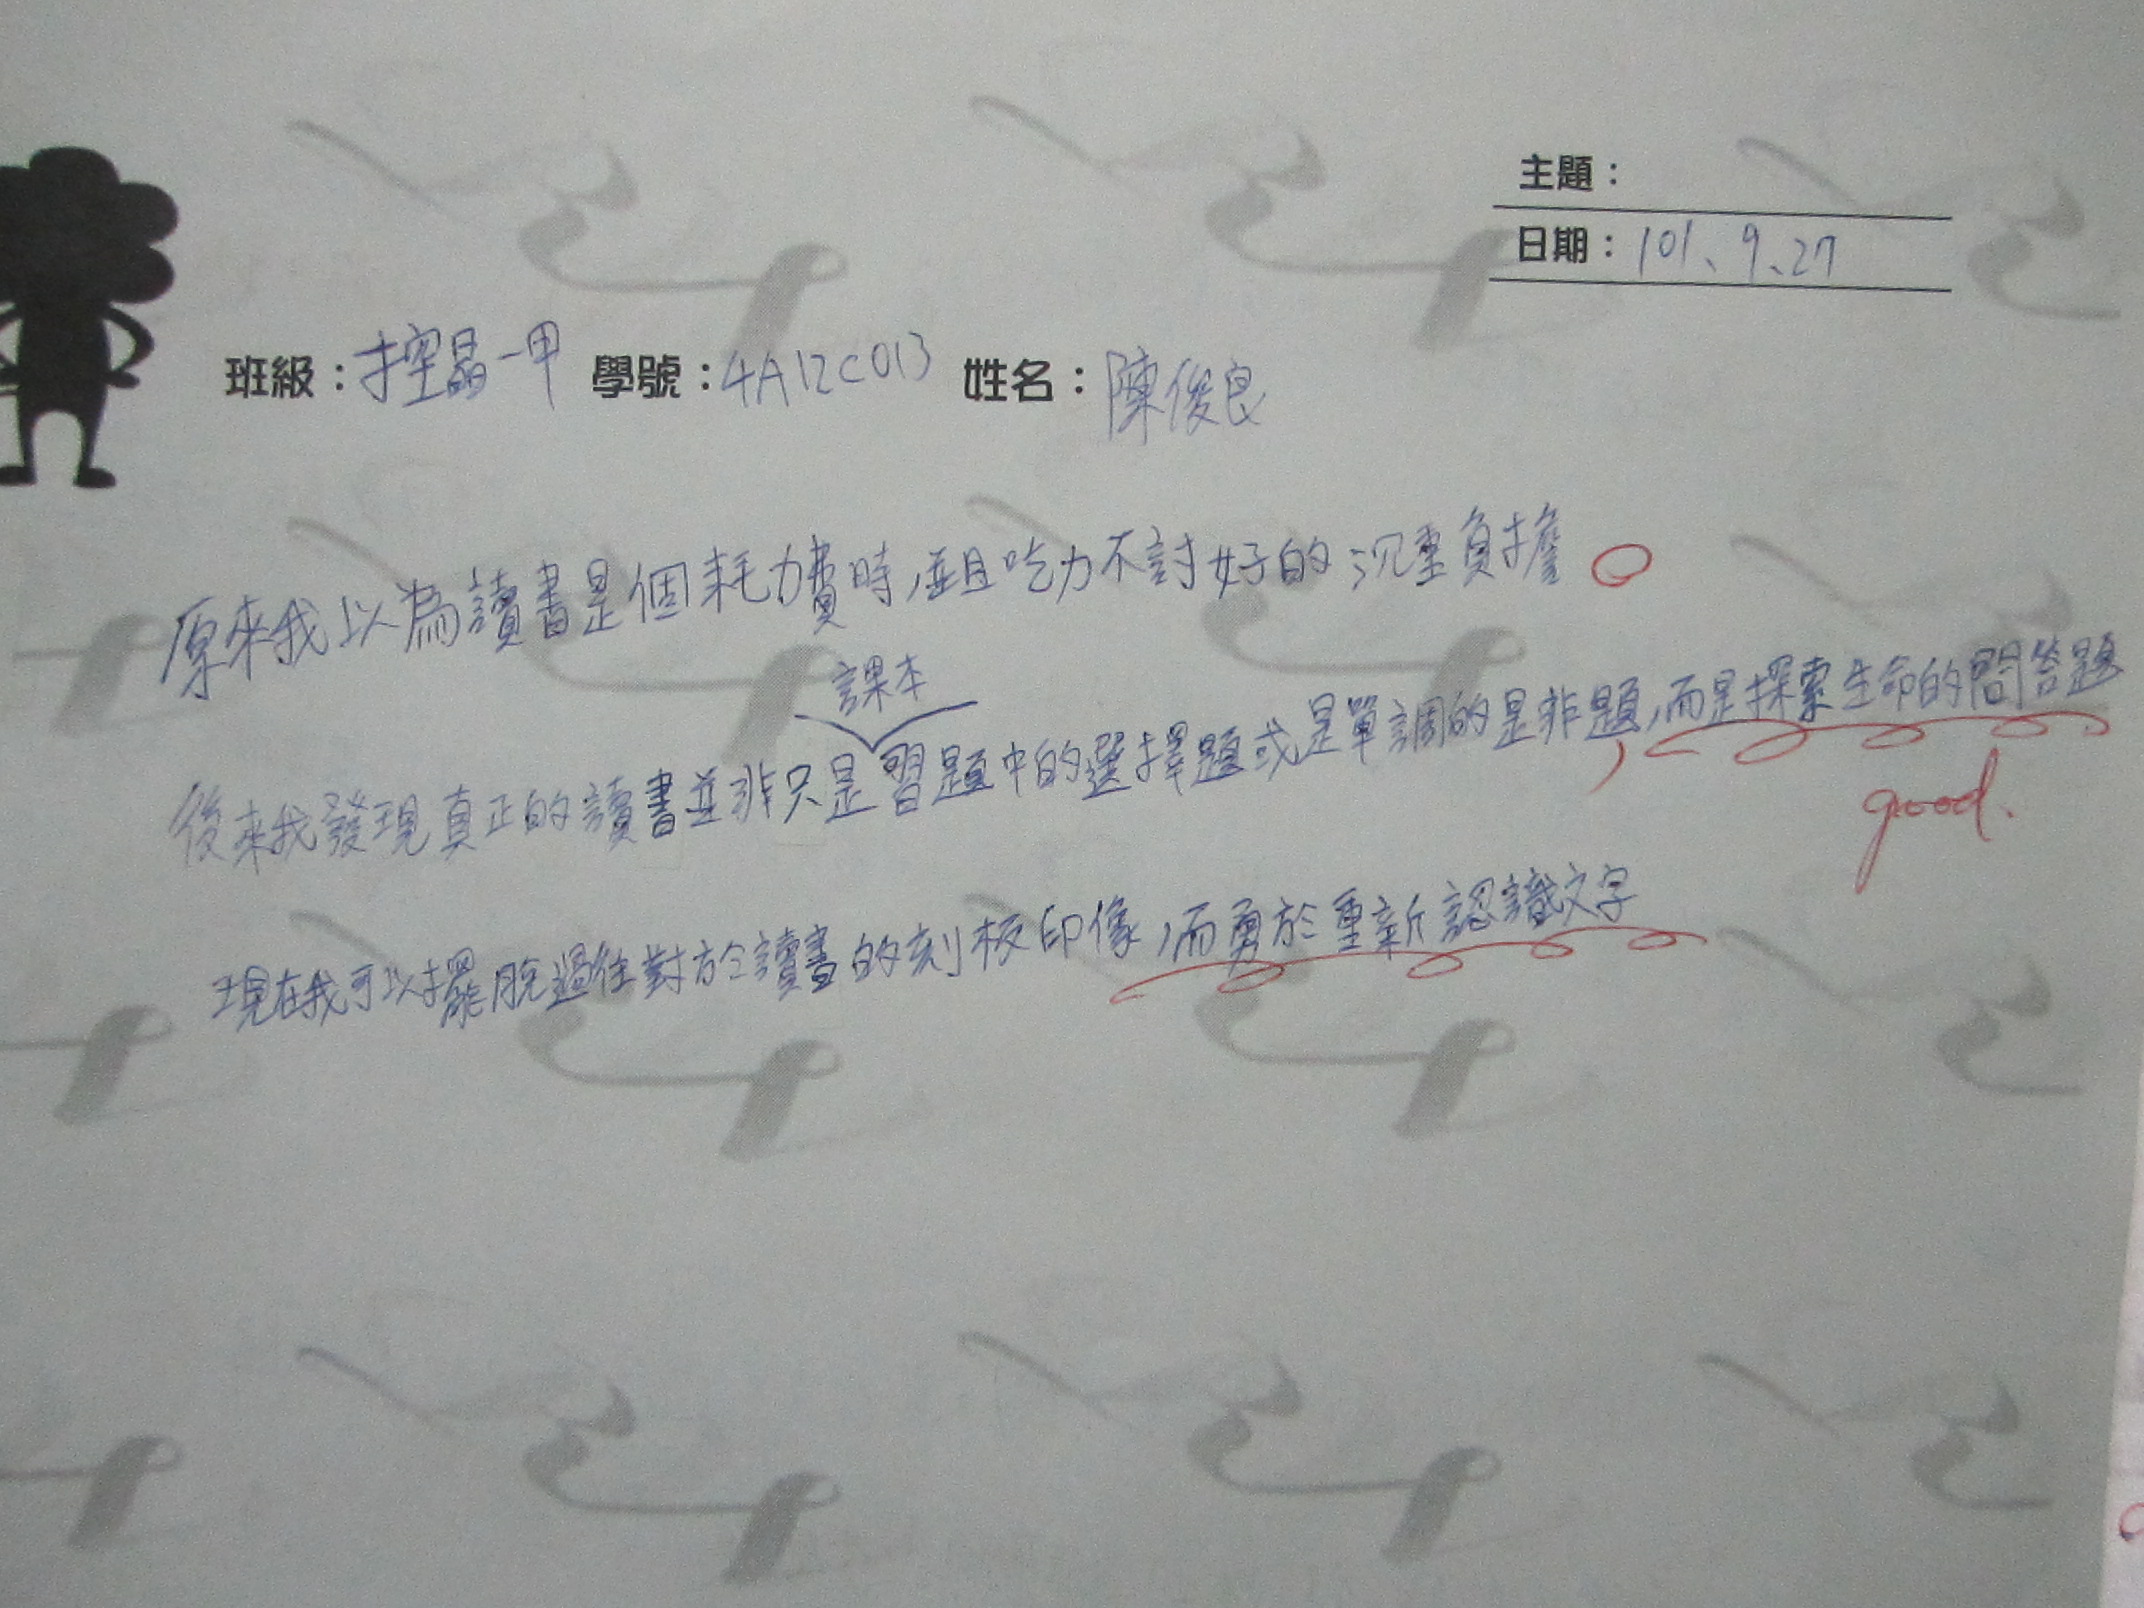 主題：
日期：101、9、27
班級：控晶一甲 學號：4A12C013 姓名：陳俊良
原來我以為讀書是個耗力費時，並且吃力不討好的沉重負擔。
課本
後來我發現真正的讀書並非只是習題中的選擇題或是單調的是非題，而是探索生命的問答題
good.
現在我可以擺脫過往對於讀書的刻板印像，而勇於重新認識文字